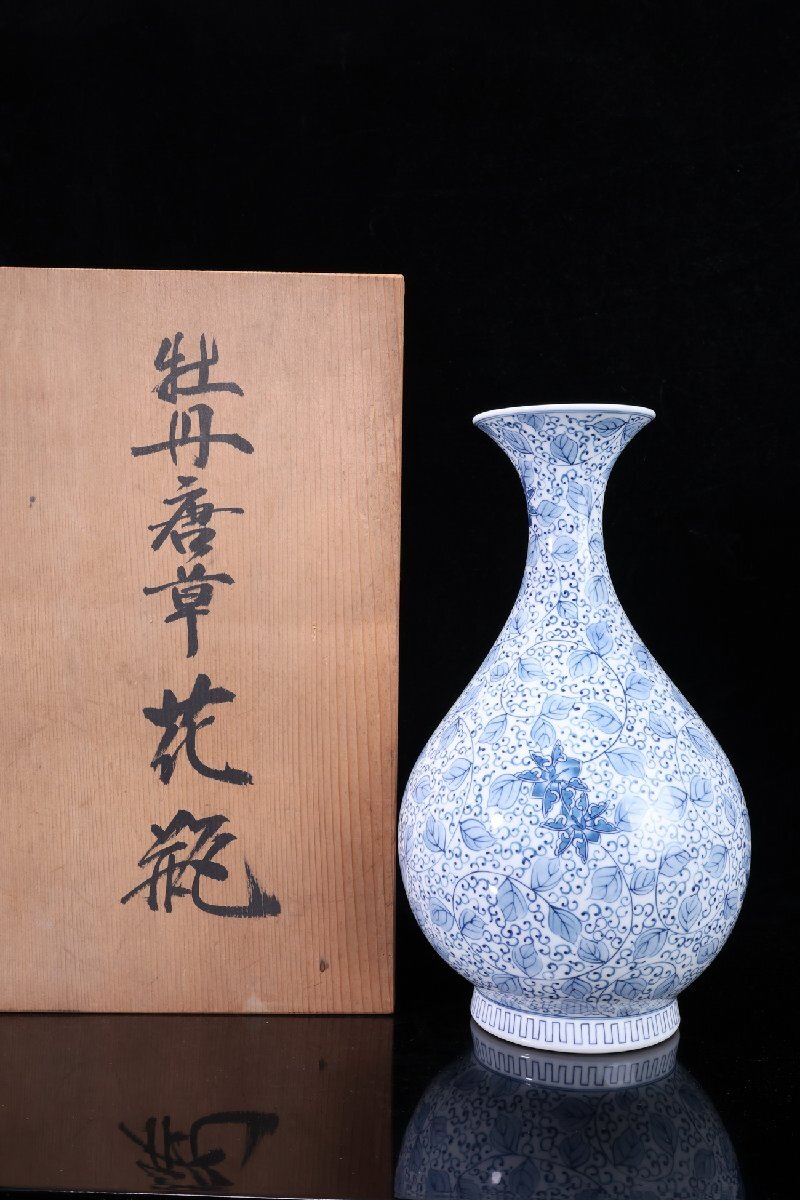 牡丹唐草花瓶